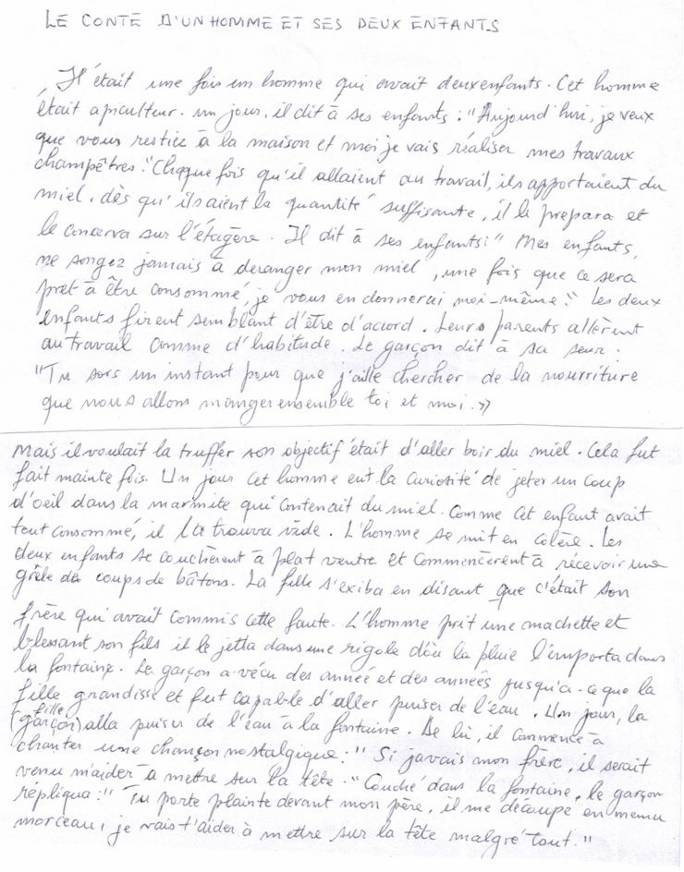 LE CONTE D'UN HOMME ET SES DEUX ENFANTS
Il était une fois un homme qui avait deux enfants. Cet homme
était apiculteur. un jour, il dit à ses enfants : "Aujourd'hui, je veux
que vous restiez à la maison et moi je vais réaliser mes travaux
champêtres." Chaque fois qu'il allaient au travail, ils apportaient du
miel. dès qu'ils aient la quantité suffisante, il le prepara et
le conserva sur l'étagère. Il dit à ses enfants : " Mes enfants,
ne songez jamais à deranger mon miel, une fois que ce sera
prêt à être consommé, je vous en donnerai moi-même." Les deux
enfants firent semblant d'être d'accord. Leurs parents allèrent
au travail comme d'habitude. Le garçon dit à sa seur :
"Tu sors un instant pour que j'aille chercher de la nourriture
que nous allons manger ensemble toi et moi. »
Mais il voulait la truffer son objectif était d'aller boir du miel. Cela fut
fait mainte fois. Un jour cet homme eut la curiosité de jeter un coup
d'oeil dans la marmite qui contenait du miel. Comme cet enfant avait
tout consommé, il la trouva vide. L'homme se mit en colère. Les
deux enfants se couchèrent à plat ventre et commencèrent à récevoir une
grêle de coups de bâtons. La fille s'exiba en disant que c'était son
frère qui avait commis cette faute. L'homme prit une machette et
blessant son fils il le jetta dans une rigole d'où la pluie l'emporta dans
la fontaine. Le garçon a vécu des année et des années jusqu'à-ce que la
fille grandisse et fut capable d'aller puiser de l'eau. Un jour, la
fille
(garçon) alla puiser de l'eau à la fontaine. De lui, il commence à
chanter une chançon nostalgique : " Si javais mon frère, il serait
venu m'aider à mettre sur la tête." Couché dans la fontaine, le garçon
répliqua : " Tu porte plainte devant mon père, il me découpe en menu
morceau, je vais t'aider à mettre sur la tête malgré tout."